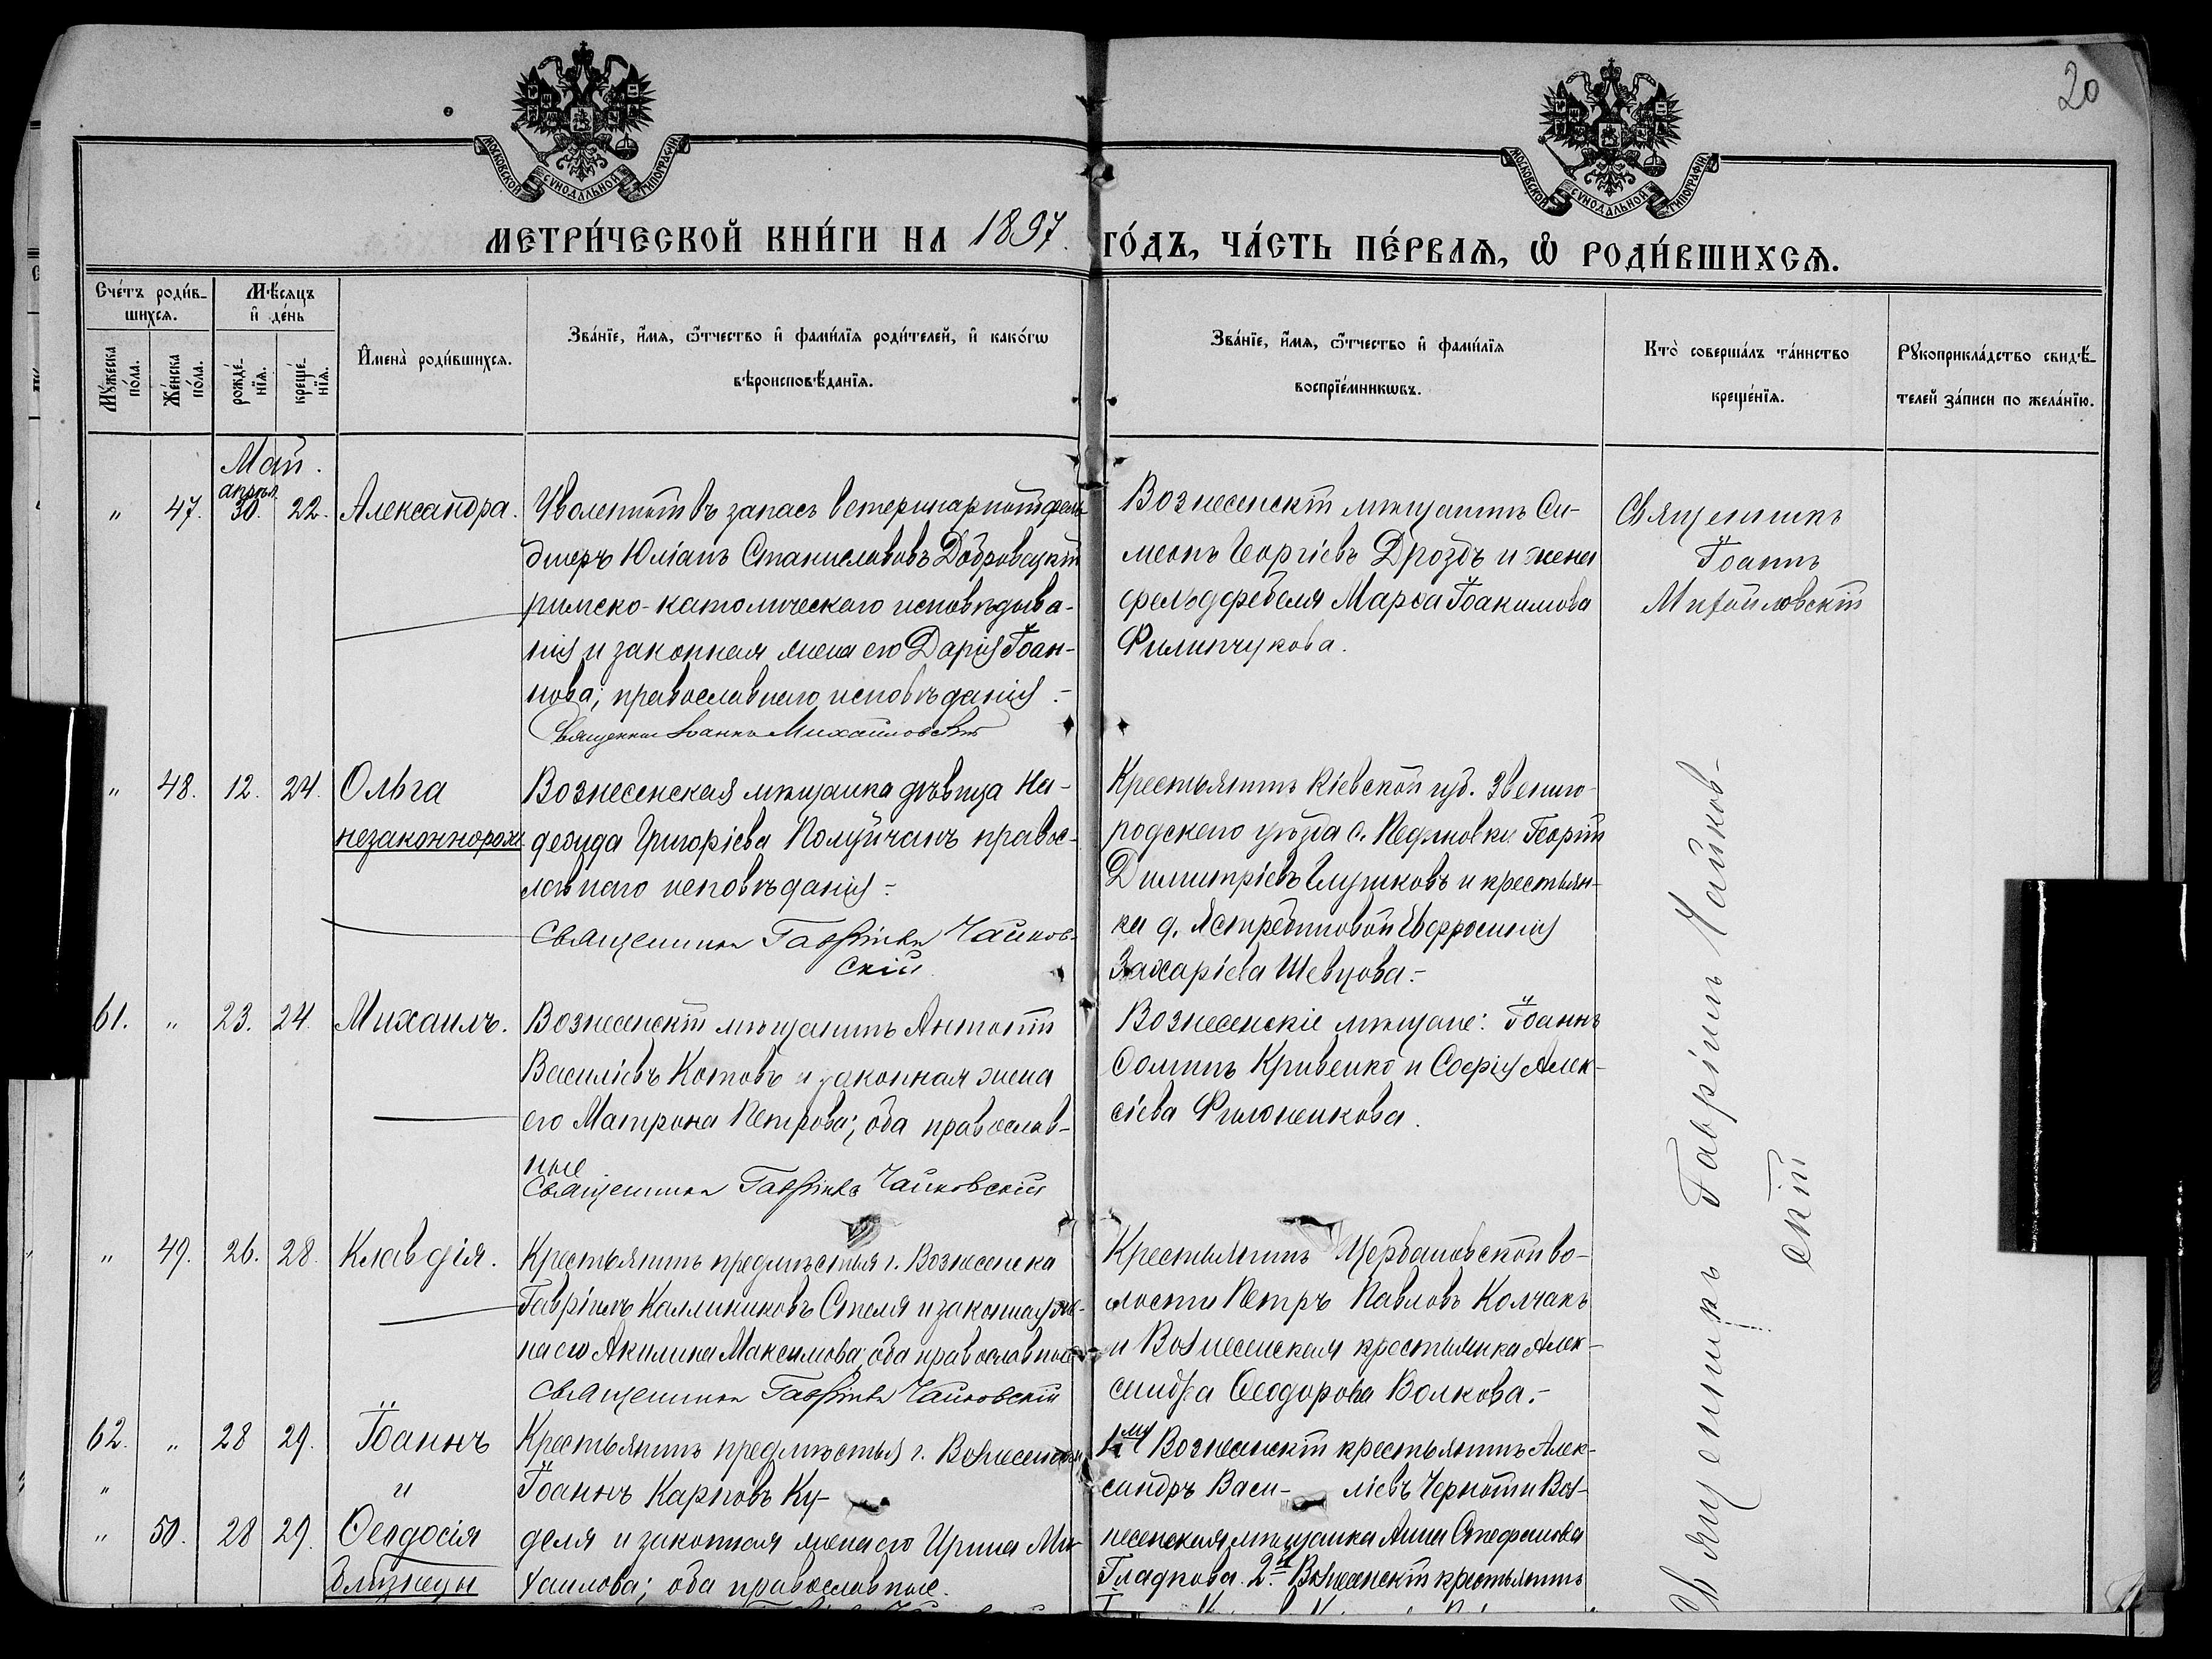 20
МОСКОВСКОЙ СѴНОДАЛЬНОЙ ТИПОГРАФІИ
МОСКОВСКОЙ СѴНОДАЛЬНОЙ ТИПОГРАФІИ
МЕТРИ́ЧЕСКОЙ КНИ́ГИ НА 1897 ГО́ДЪ, ЧА́СТЬ ПЕ́РВАѦ, Ѽ РОДИ́ВШИХСѦ.
Сче́тъ роди́в-
шихсѧ.
Мꙋ́жеска по́ла.
Же́нска по́ла.
Мѣ́сѧцъ и҆ де́нь
рожде́-нїѧ.
креще́-нїѧ.
И҆мена̀ роди́вшихсѧ.
Зва́нїе, и҆́мѧ, ѻ҆́тчество и҆ фами́лїѧ роди́телей, и҆ како́гѡ
вѣроисповѣ́данїѧ.
Зва́нїе, и҆́мѧ, ѻ҆́тчество и҆ фами́лїѧ
воспрїе́мникѡвъ.
Кто̀ соверша́лъ та́инство
креще́нїѧ.
Рꙋкоприкла́дство свидѣ́-
телей за́писи по жела́нїю.
Май.
апрѣл.
" 47. 30. 22. Александра.
Уволенный въ запасъ ветеринарный фель-
дшеръ Юліанъ Станиславовъ Добровоцкій
римско-католическаго исповѣдыва-
нія и законная жена его Дарія Іоан-
нова; православнаго исповѣданія.-
Священникъ Іоаннъ Михайловскій
Вознесенскій мѣщанинъ Си-
меонъ Георгіевъ Дроздъ и жена
фельдфебеля Марѳа Іоакимова
Филипчукова.
Священникъ
Іоаннъ
Михайловскій
" 48. 12. 24. Ольга
незаконнорож.
Вознесенская мѣщанка дѣвица На-
дежда Григоріева Полуйчанъ правос-
лавнаго исповѣданія-
Священникъ Гавріилъ Чайков-
скій.
Крестьянинъ Кіевской губ. Звениго-
родскаго уѣзда с. Пединовки Георгій
Димитріевъ Глушковъ и крестьян-
ка д. Ястребиновой Евфросинія
Захаріева Шевцова.-
61. " 23. 24. Михаилъ.
Вознесенскій мѣщанинъ Антоній
Василіевъ Котовъ и законная жена
его Матрона Петрова; оба православ-
ные
Священникъ Гавріилъ Чайковскій
Вознесенскіе мѣщане: Іоаннъ
Ѳоминъ Кривенко и Софія Алек-
сіева Филоненкова.
" 49. 26. 28. Клавдія.
Крестьянинъ предмѣстья г. Вознесенска
Гавріилъ Каллиниковъ Стеля и законная же-
на его Акилина Максимова; оба православные
Священникъ Гавріилъ Чайковскій
Крестьянинъ Щербановской во-
лости Петръ Павловъ Колчакъ
и Вознесенская крестьянка Алек-
сандра Ѳеодорова Волкова.-
62. " 28 29. Іоаннъ
" и
" 50. 28 29. Ѳеодосія
близнецы
Крестьянинъ предмѣстья г. Вознесенска
Іоаннъ Карповъ Ку-
деля и законная жена его Ирина Ми-
хаилова; оба православные.
1му Вознесенскій крестьянинъ Алек-
сандръ Васи- ліевъ Черный и Воз-
несенская мѣщанка Анна Стефанова
Гладкова. 2й Вознесенскій крестьянинъ
Священникъ Гавріилъ Чайков-
скій